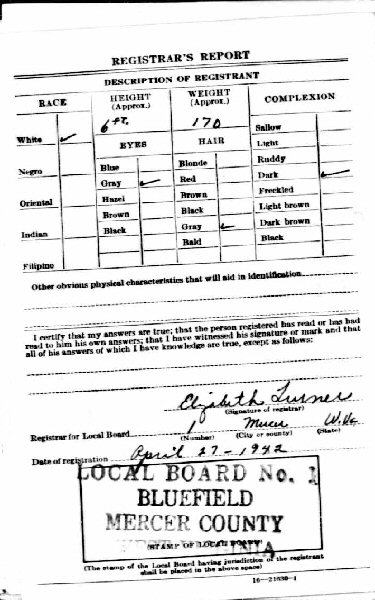 REGISTRAR'S REPORT
DESCRIPTION OF REGISTRANT
RACE HEIGHT (Approx.) WEIGHT (Approx.) COMPLEXION
6 ft. 170
White ✓ EYES HAIR Sallow
Light
Negro Blue Blonde Ruddy
Gray ✓ Red Dark ✓
Oriental Hazel Brown Freckled
Brown Black Light brown
Indian Black Gray ✓ Dark brown
Bald Black
Filipino
Other obvious physical characteristics that will aid in identification
I certify that my answers are true; that the person registered has read or has had
read to him his own answers; that I have witnessed his signature or mark and that
all of his answers of which I have knowledge are true, except as follows:
Elizabeth Turner
(Signature of registrar)
Registrar for Local Board 1 Mercer W.Va
(Number) (City or county) (State)
Date of registration April 27-1942
LOCAL BOARD No. 1
BLUEFIELD
MERCER COUNTY
WEST VIRGINIA
(STAMP OF LOCAL BOARD)
(The stamp of the Local Board having jurisdiction of the registrant
shall be placed in the above space)
16—21630-1